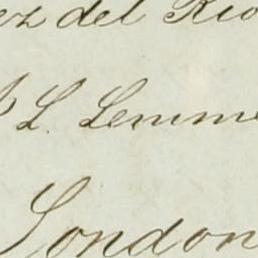 ez del Rio
L. Lemme
London